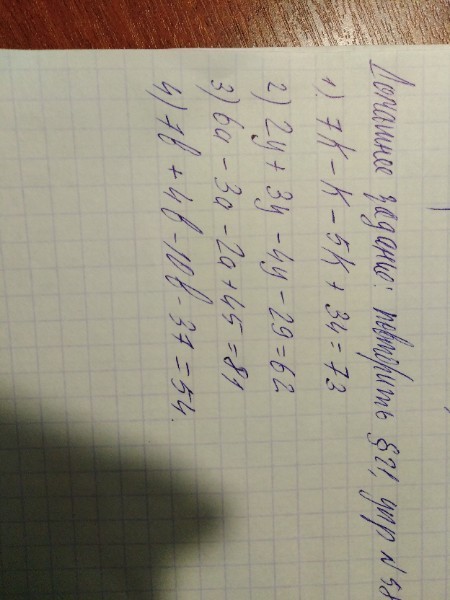 Домашнее заданье: повторить §21, упр N 58
1). 7k - k - 5k + 34 = 73
2) 2y + 3y - 4y - 29 = 62
3) 6a - 3a - 2a + 45 = 81
4) 7b + 4b - 10b - 37 = 54.